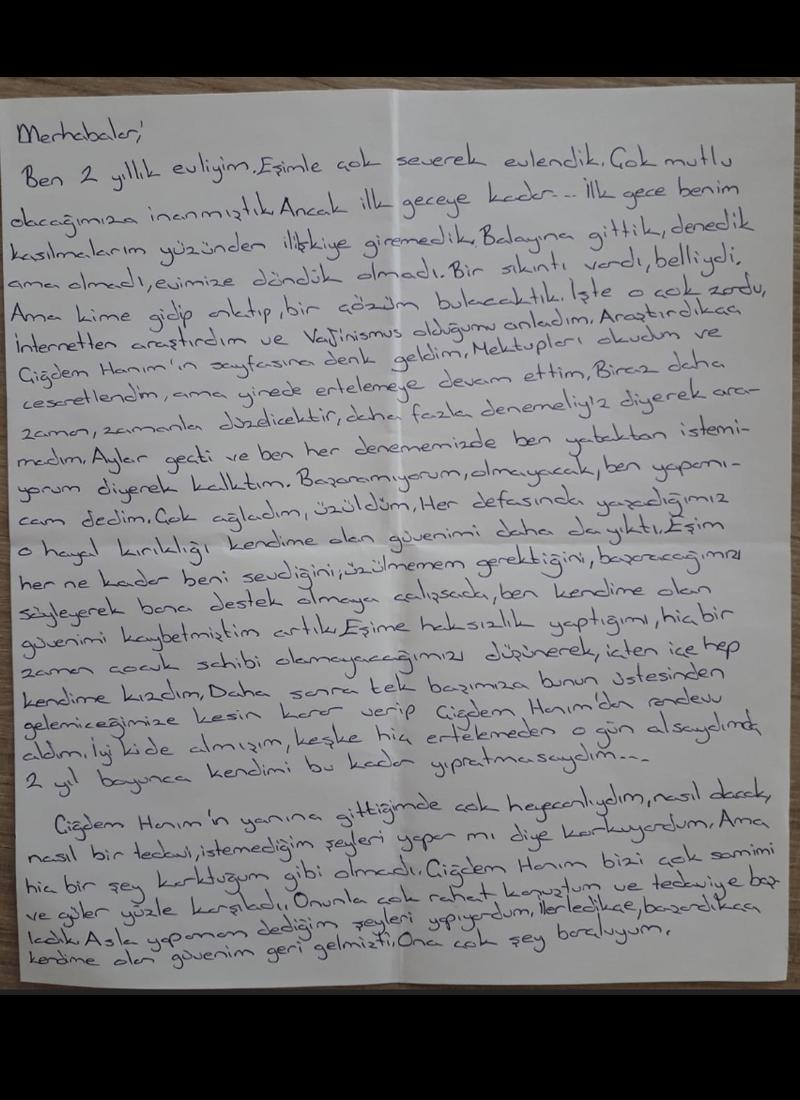 Merhabalar;
Ben 2 yıllık evliyim. Eşimle çok severek evlendik. Çok mutlu
olacağımıza inanmıştık. Ancak ilk geceye kadar... İlk gece benim
kasılmalarım yüzünden ilişkiye giremedik. Balayına gittik, denedik
ama olmadı, evimize döndük olmadı. Bir sıkıntı vardı, belliydi.
Ama kime gidip anlatıp, bir çözüm bulacaktık. İşte o çok zordu,
internetten araştırdım ve Vajinismus olduğumu anladım. Araştırdıkça
Çiğdem Hanım'ın sayfasına denk geldim. Mektupları okudum ve
cesaretlendim, ama yinede ertelemeye devam ettim. Biraz daha
zaman, zamanla düzelicektir, daha fazla denemeliyiz diyerek ara-
madım. Aylar geçti ve ben her denememizde ben yataktan istemi-
yorum diyerek kalktım. Başaramıyorum, olmayacak, ben yapamı-
cam dedim. Çok ağladım, üzüldüm. Her defasında yaşadığımız
o hayal kırıklığı kendime olan güvenimi daha da yıktı. Eşim
her ne kadar beni sevdiğini, üzülmemem gerektiğini, başaracağımızı
söyleyerek bana destek olmaya çalışsada, ben kendime olan
güvenimi kaybetmiştim artık. Eşime haksızlık yaptığımı, hiç bir
zaman çocuk sahibi olamayacağımızı düşünerek, içten içe hep
kendime kızdım. Daha sonra tek başımıza bunun üstesinden
gelemiceğimize kesin karar verip Çiğdem Hanım'dan randevu
aldım. İyi kide almışım, keşke hiç ertelemeden o gün alsaydımda
2 yıl boyunca kendimi bu kadar yıpratmasaydım...
Çiğdem Hanım'ın yanına gittiğimde çok heyecanlıydım, nasıl olacak,
nasıl bir tedavi, istemediğim şeyleri yapar mı diye korkuyordum. Ama
hiç bir şey korktuğum gibi olmadı. Çiğdem Hanım bizi çok samimi
ve güler yüzle karşıladı. Onunla çok rahat konuştum ve tedaviye baş-
ladık. Asla yapamam dediğim şeyleri yapıyordum, ilerledikçe, başardıkça
kendime olan güvenim geri gelmişti. Ona çok şey borçluyum.